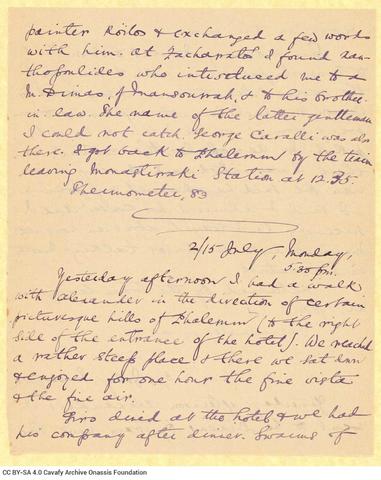 painter Roilos & exchanged a few words
with him. At Zacharatos I found Xan-
thopoulides who introduced me to a
M. Dimas, of Mansourah, & to his brother-
in-law. The name of the latter gentleman
I could not catch. George Cavalli was also
there. I got back to Phalerum by the train
leaving Monastiraki Station at 12.35.
Thermometer, 83
2/15 July, Monday,
5.30 pm.
Yesterday afternoon I had a walk
with Alexander in the direction of certain
picturesque hills of Phalerum (to the right
side of the entrance of the hotel). We reached
a rather steep place & there we sat down
& enjoyed for one hour the fine vista
& the fine air.
dined at the hotel & we had
his company after dinner. Swarms of
CC BY-SA 4.0 Cavafy Archive Onassis Foundation